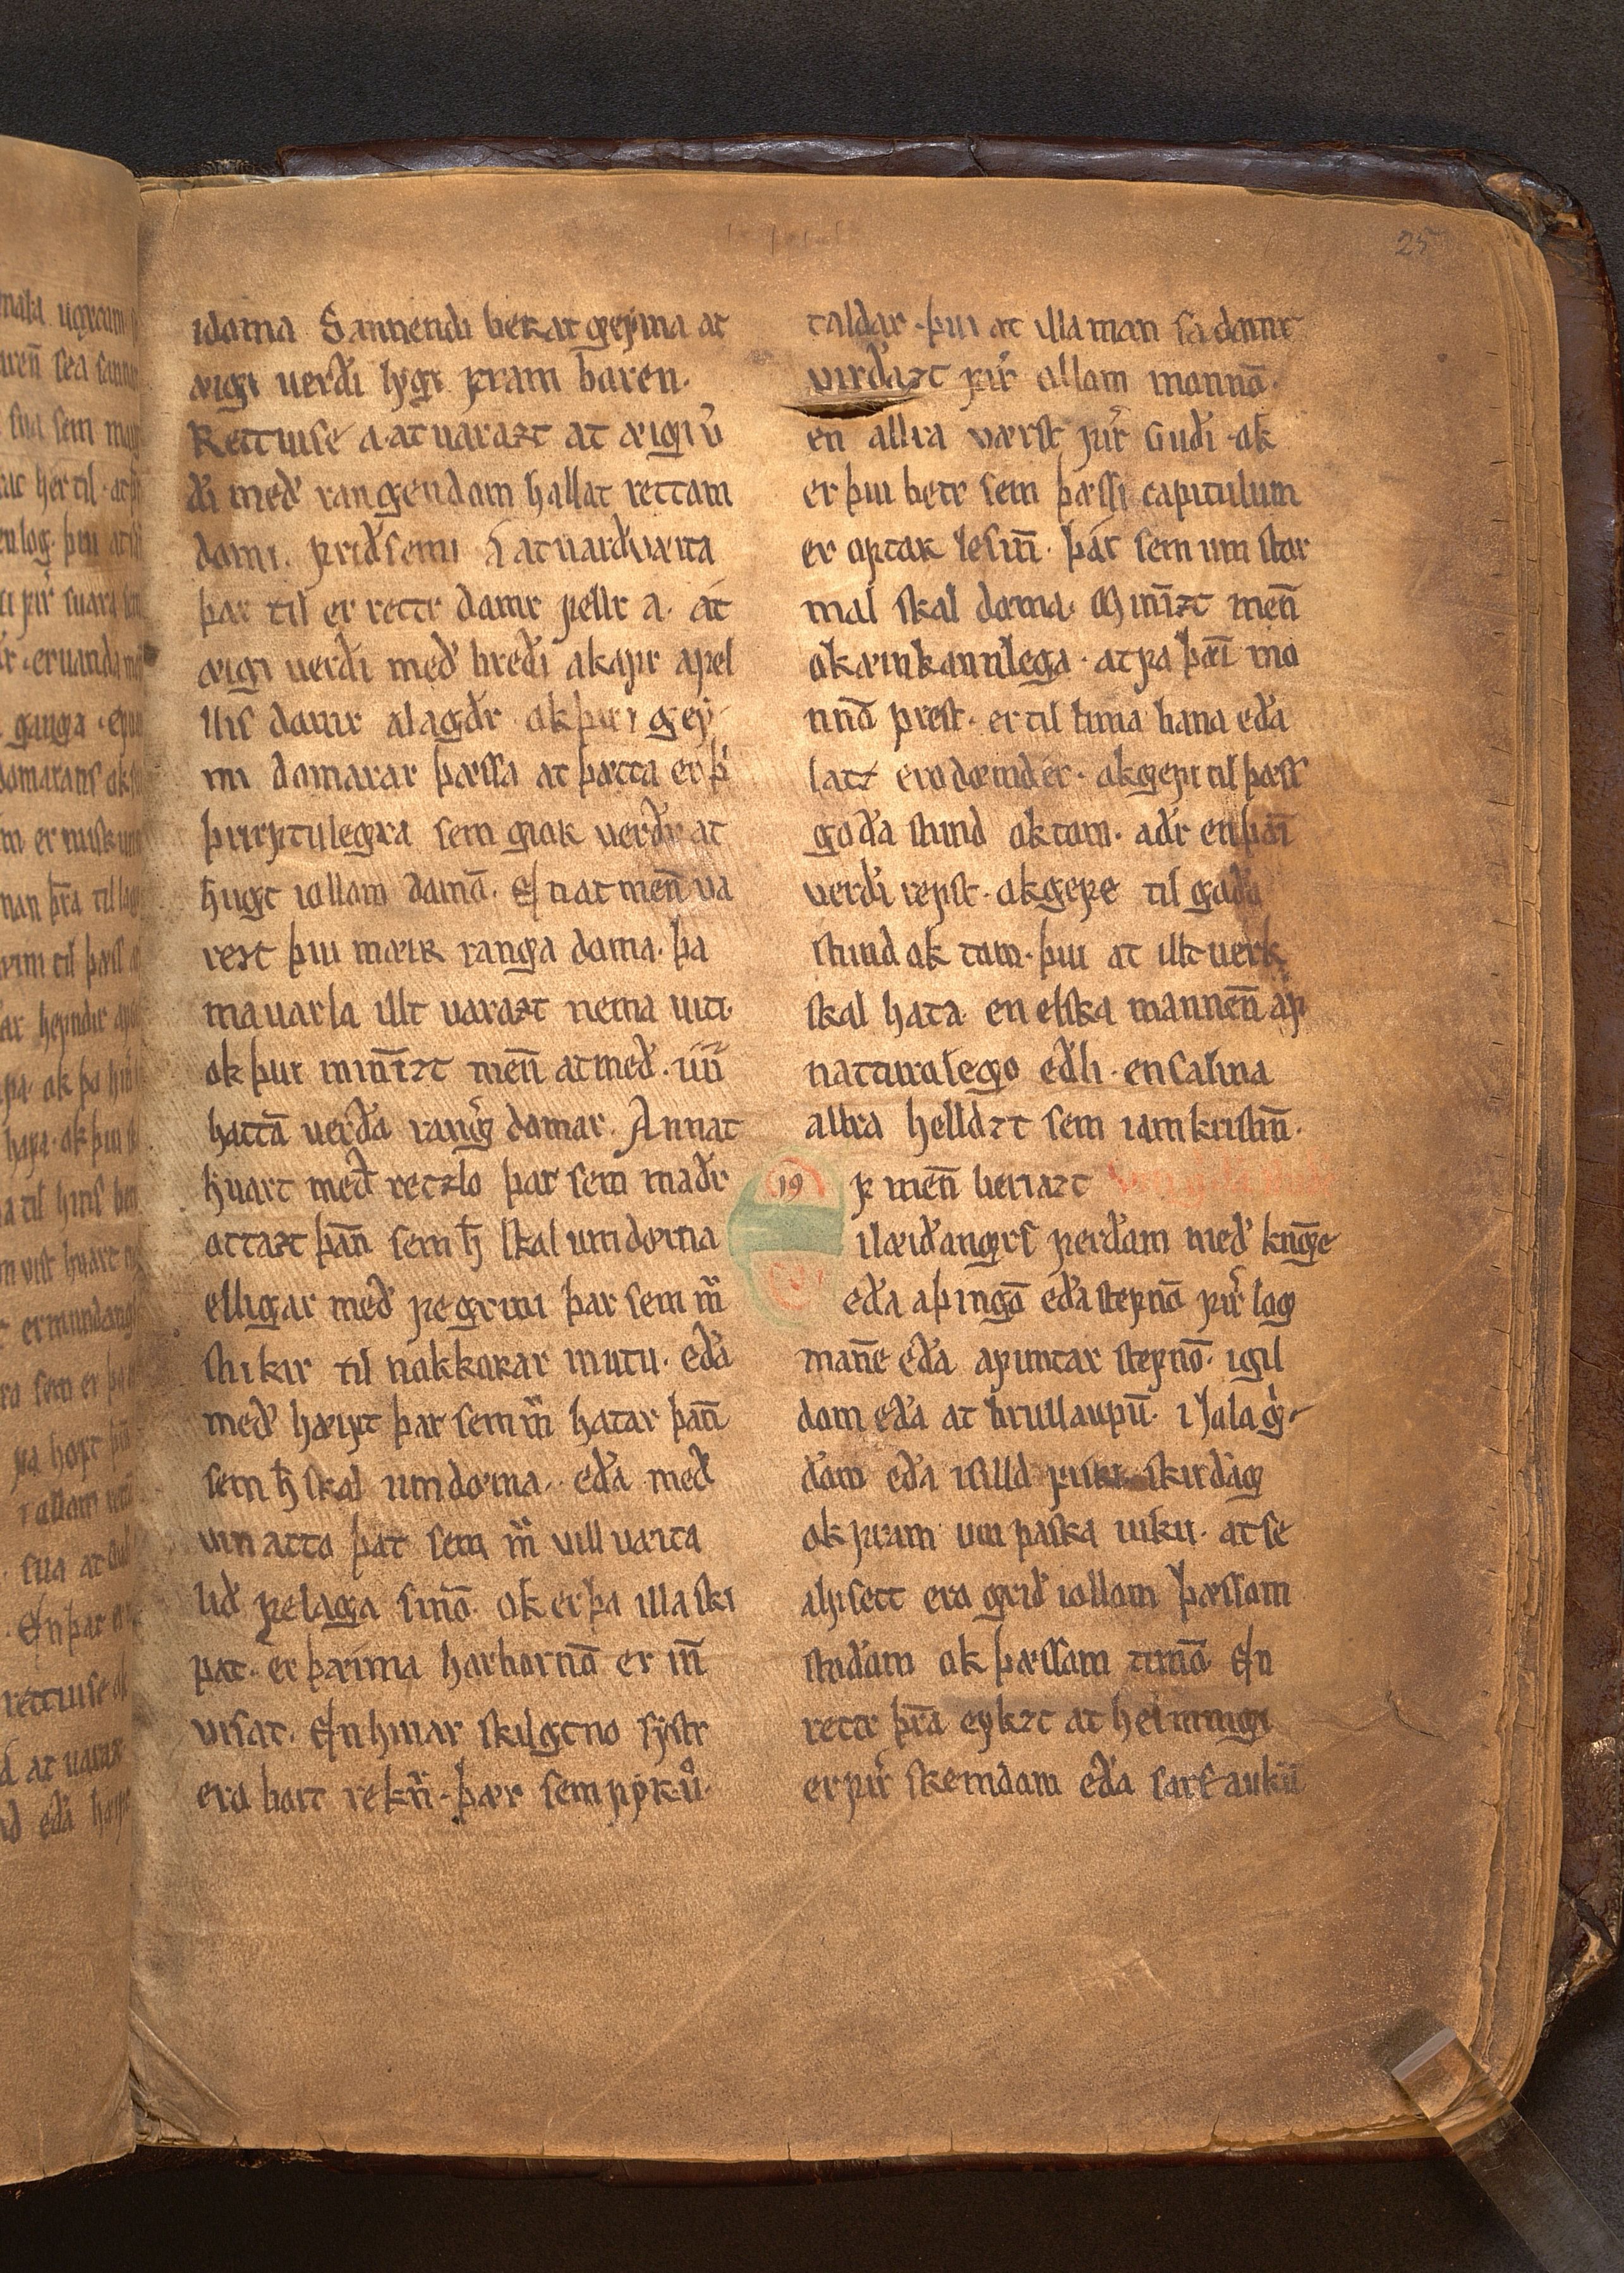 25
idoma Sannendi berat geyma at
æigi uerði lygi fram boren.
Rettuise a at uarazt at æigi u͛
ði með rangendom hallat rettom
domi. friðsemi a at uarðuæita
þar til er rettr domr fellr a. at
æigi uerði með breði akafr afel
llis domr alagðr ok þui i gey
mi domarar þæssa at þætta er þ͛
þurftulegra sem giok verðr at
hugt iollom domō. En at men̄ ua
rezt þui mæir ranga doma. þa
ma uarla illt uarazt nema uiti.
ok þui min̄izt men̄ at með .iiii
hattō uerða rang͛ domar. Annat
huart með retzlo þar sem maðr
ottazt þan̄ sem h̄ skal um dœma
elligar með fegirni þar sem m̄
slikir til nokkorar mutu. eða
með hæift þar sem m̄ hatar þan̄
sem h̄ skal um doma. eða með
vin atto þat sem m̄ vill uæita
lið felaga sinō. ok er þa illa ski
pat. er þæima horbornō er in̄
uisat. En hinar skilgetno systr
ero bort rekn͛. þær sem fyr u͛.
taldar. þui at illa man sa domr
virðazt fir͛ ollom mannō.
en allra værst fir͛ Guði. ok
er þui betr sem þæssi capitulum
er optar lesin̄. þar sem um stor
mal skal doma. Min̄izt men̄
ok æinkannlega. at fa þæi mo
nnō prest. er til lima bana eða
latz ero dœmder. ok gefi til þæss
goða stund ok tom. aðr en þæi
verði refst. ok gefe til goða
stund ok tom. þui at illt uerk
skal hata en elska mannen̄ af
naturolego eðli. en salina
allra helldzt sem iamkristin̄.
19 f men̄ beriazt
ilæiðangrs ferðom með kn̄ge
eða aþingō eða stefnō fir͛ log
man̄e eða afuntar stefnō. igil
dom eða at brullaupū. i Jola g͛
ðom eða isilld fiski skirdag
ok fram um paska uiku. at se
ahi sett ero grið iollom þæssom
stoðom ok þæssom timō En
rettr þr̄a eykzt at helmingi
er fir͛ skemdom eða sarf aukū